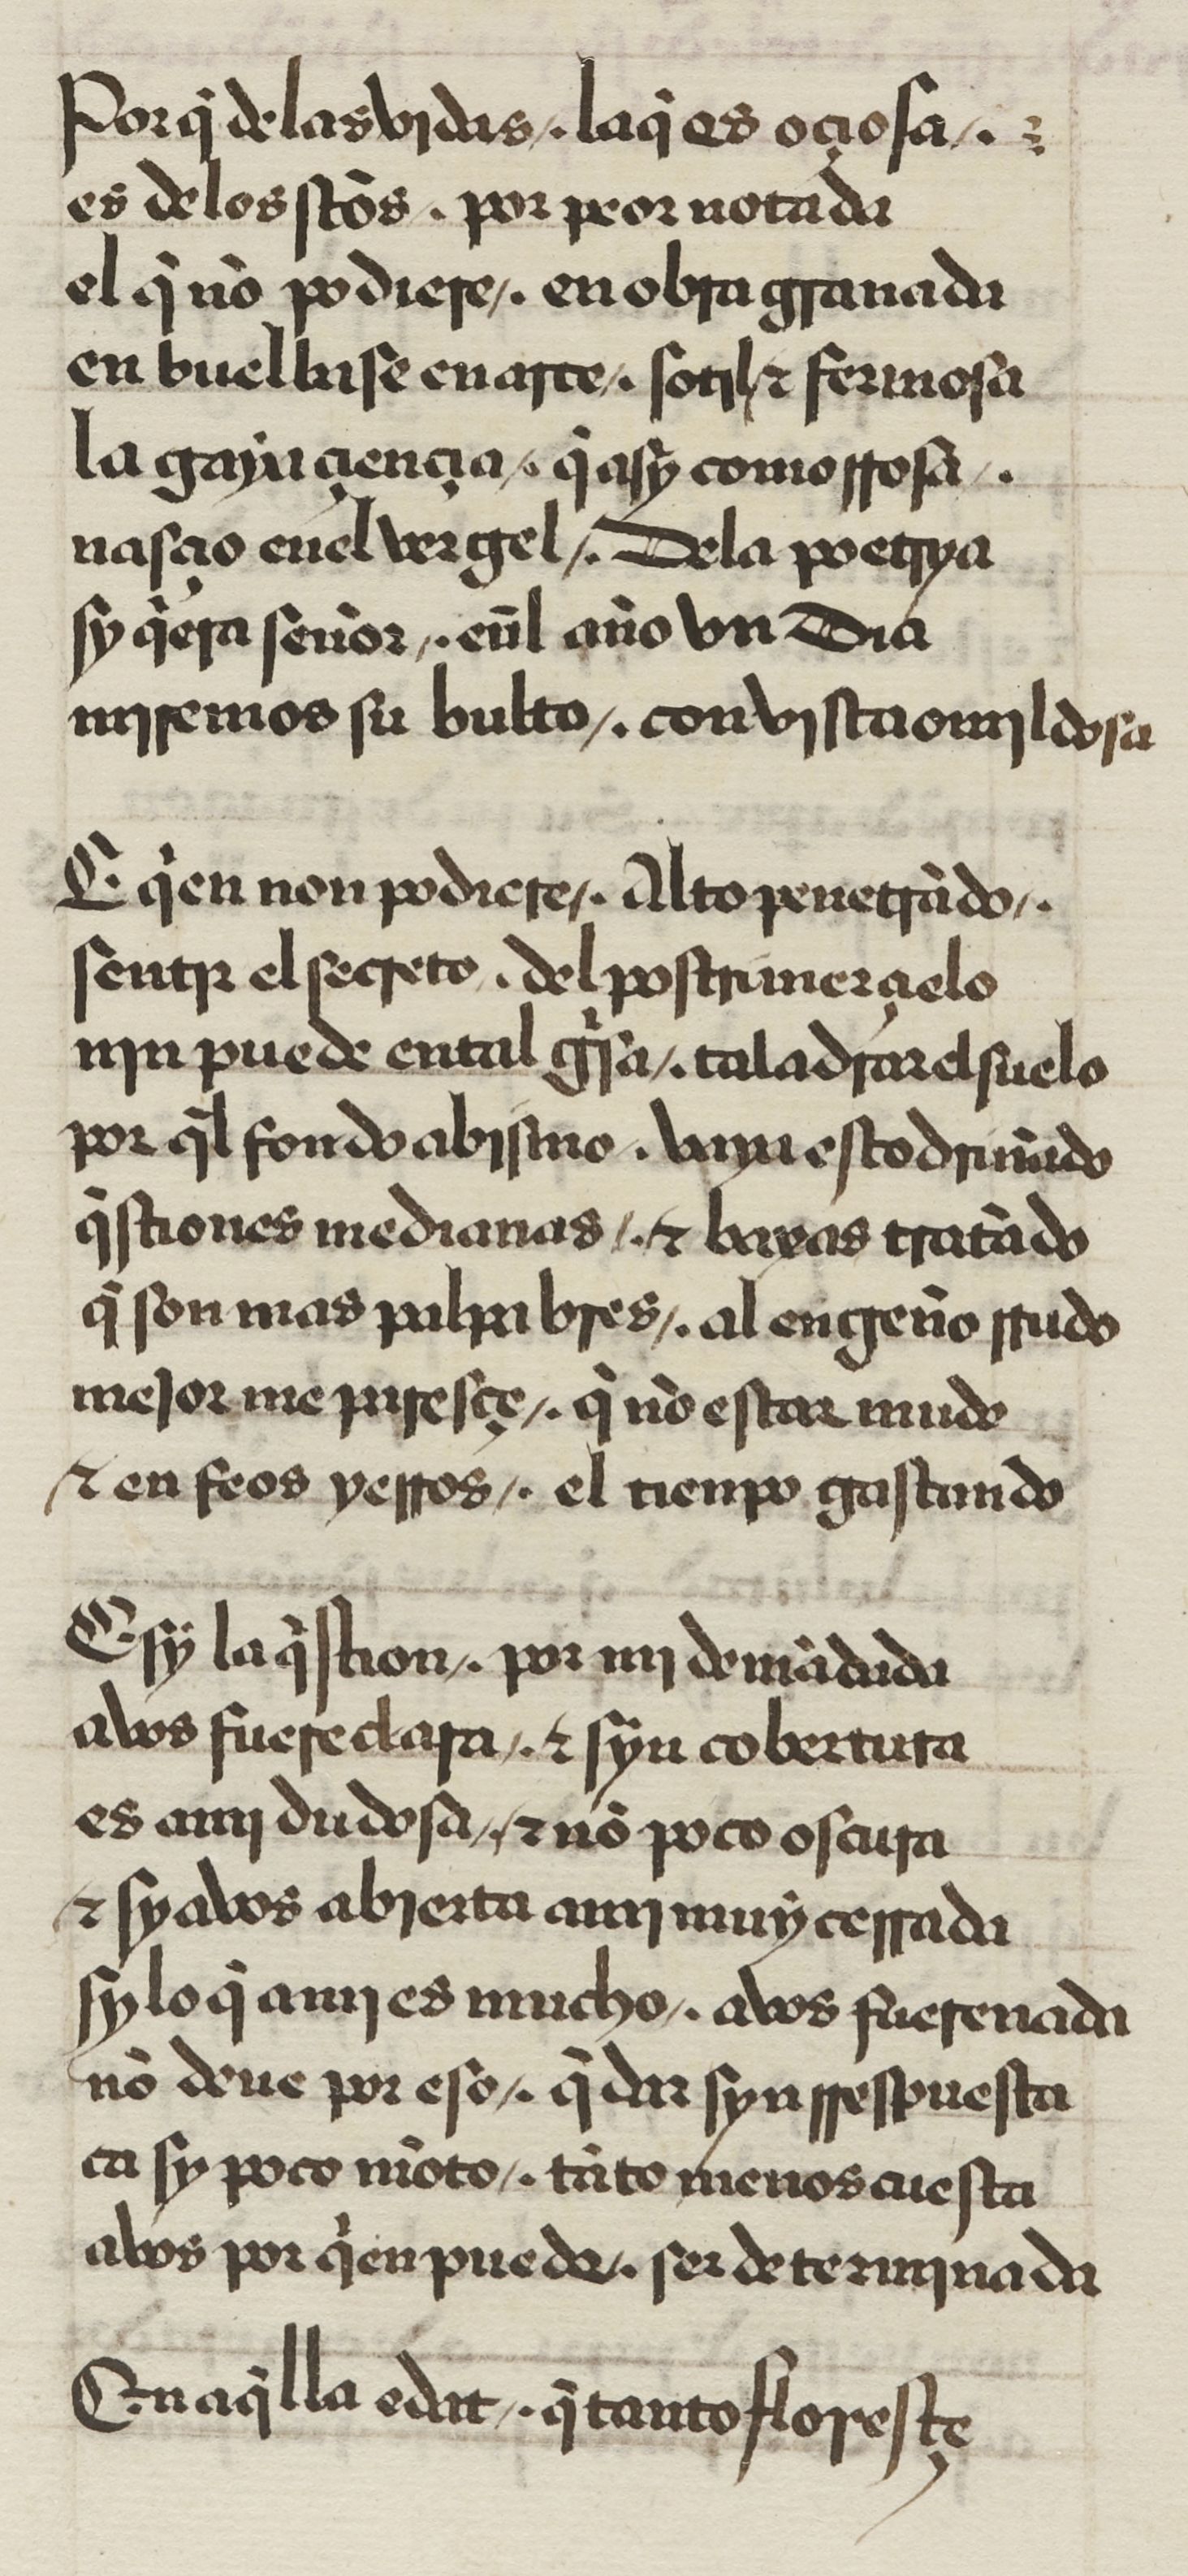 Por q̃ de las vidas /. la q̃ es oçiosa /.
es de los scõs . por peor notada
el q̃ nõ podiere /. en obra granada
en buelbase en arte /. sotil / ⁊ fermosa
la gaya çiençia /. q̃ asy como rrosa /.
nasçio enel vergel /. De la poetrya
sy q̃era señor /. eñl año vn Dia
miremos su bulto /. con vista omildosa

E q̃en non podiere /. Alto penetrãdo /.
sentir el secreto . del postrimer çielo
nin puede en tal gĩsa /. taladrar el suelo
por q̃l fondo abismo . vaya escodriñãdo
q̃stiones medianas /. ⁊ baxas tratãdo
q̃ son mas palpabres /. al engeño rrudo
mejor me paresçe /. q̃ nõ estar mudo
⁊ en feos yerros /. el tienpo gastando

E sy la q̃stion /. por mi demãdada
a vos fuere clara /. ⁊ syn cobertura
es a mi dudosa /. ⁊ nõ poco oscura
⁊ sy a vos abierta a mi muy cerrada
sy lo q̃ a mi es mucho /. a vos fuere nada
nõ deue por eso /. q̃dar syn rrespuesta
ca sy poco mõto /. tãto menos cuesta
a vos por q̃en puede /. ser determinada

En aq̃lla edat /. q̃ tanto floresçe